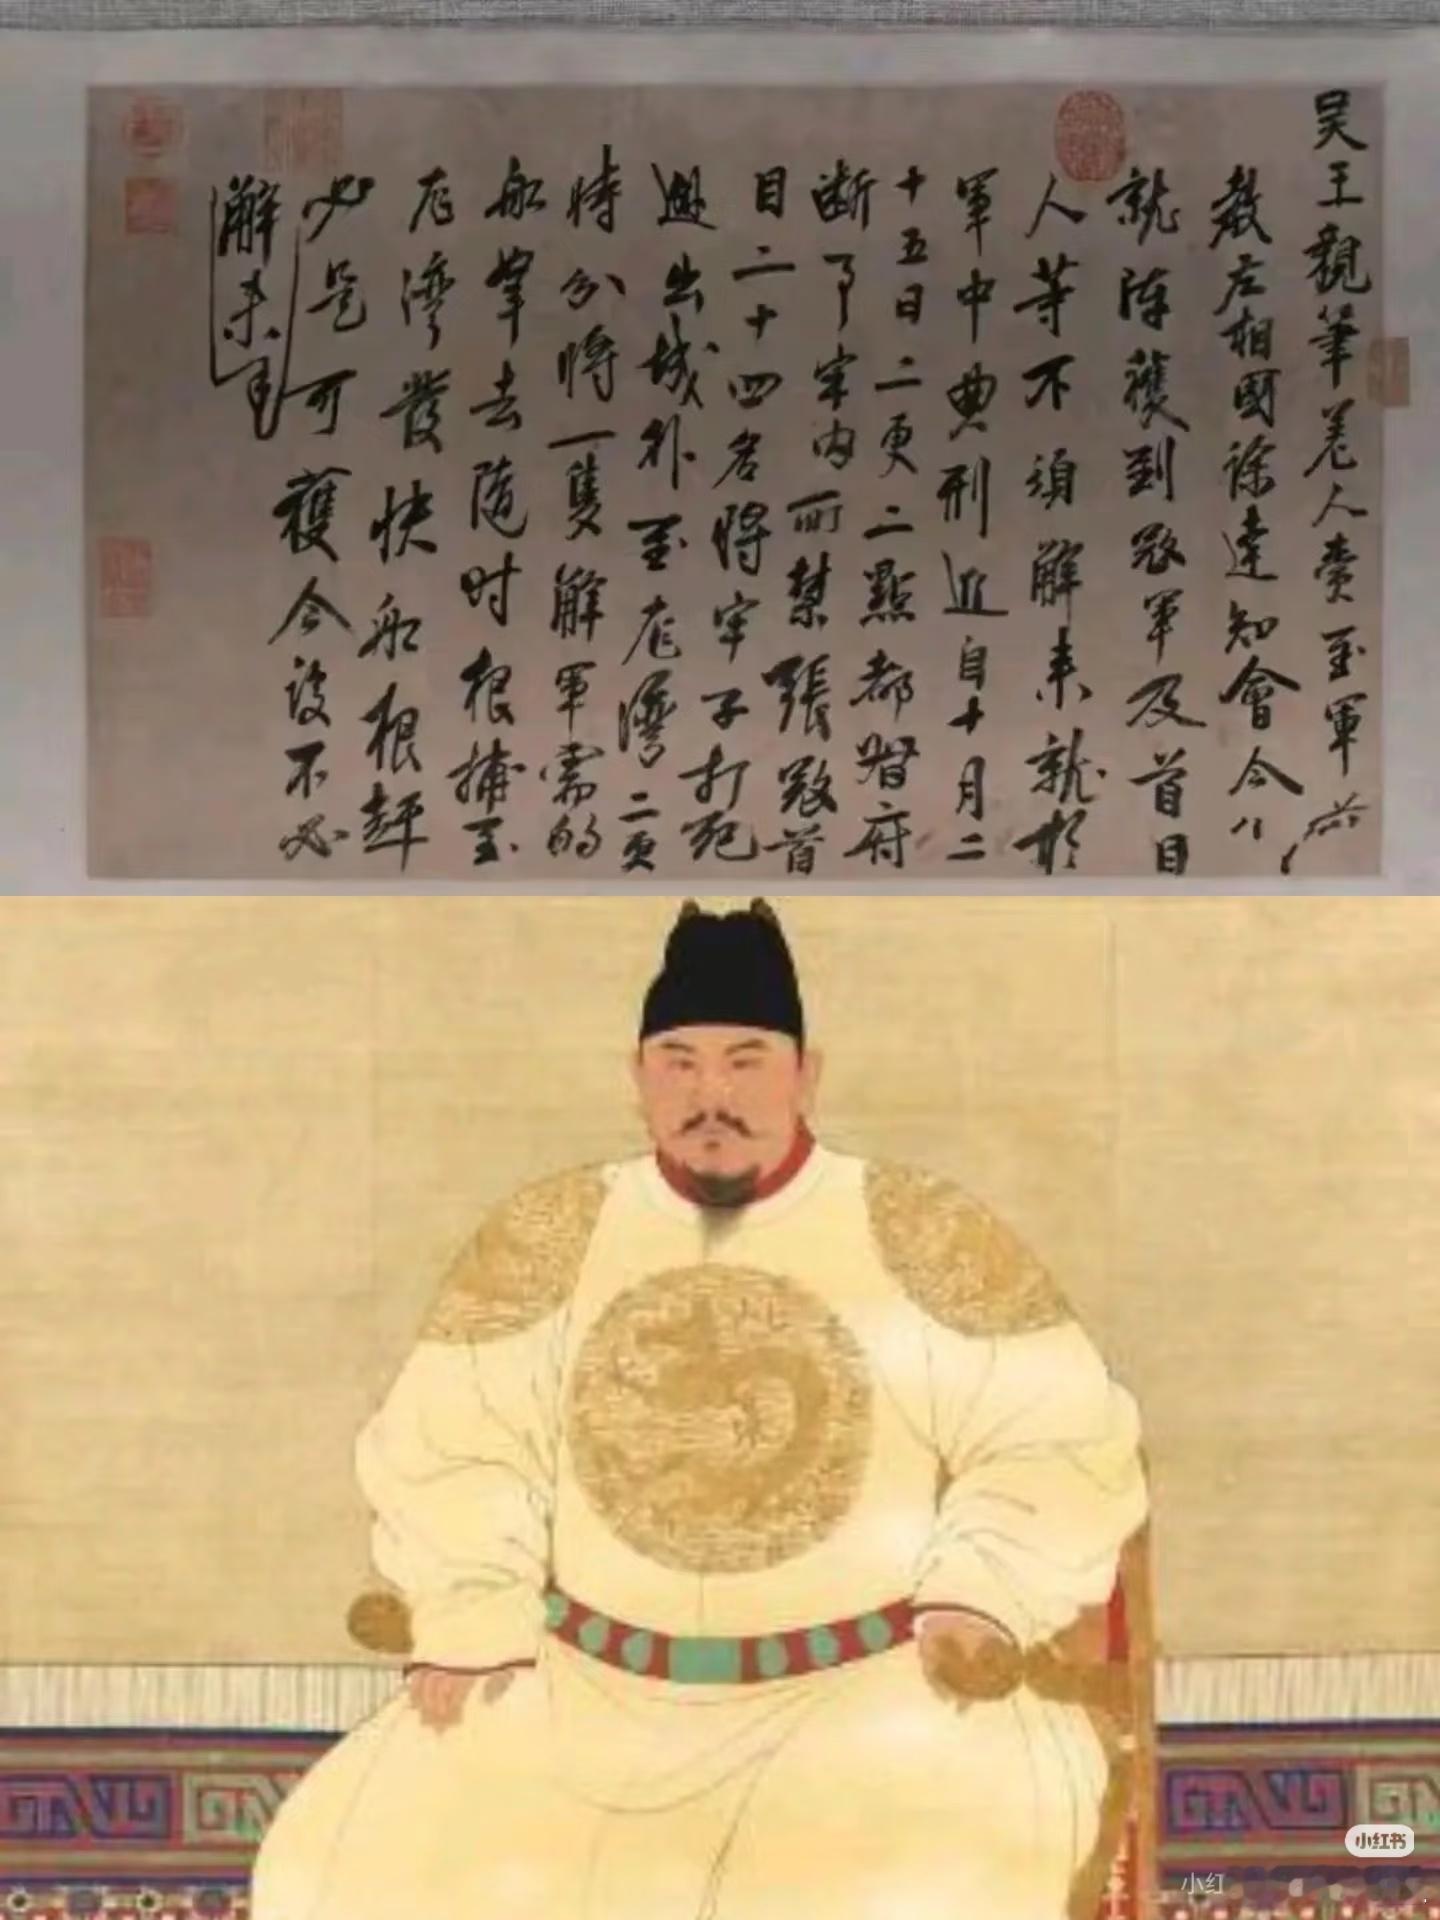 吴王親筆差人賫至軍前
教左相國徐達知會今八
就陣獲到寇軍及首目
人等不須解來就於
軍中典刑近自十月二
十五日二更二點都督府
斷了牢内所禁張寇首
目二十四名將牢子打死
逊出城外至龙灣二更
時分將一隻解軍需的
船拏去随时根捕至
龙灣發快船根趕
必是可獲今後不必
解来也
小红书
小红